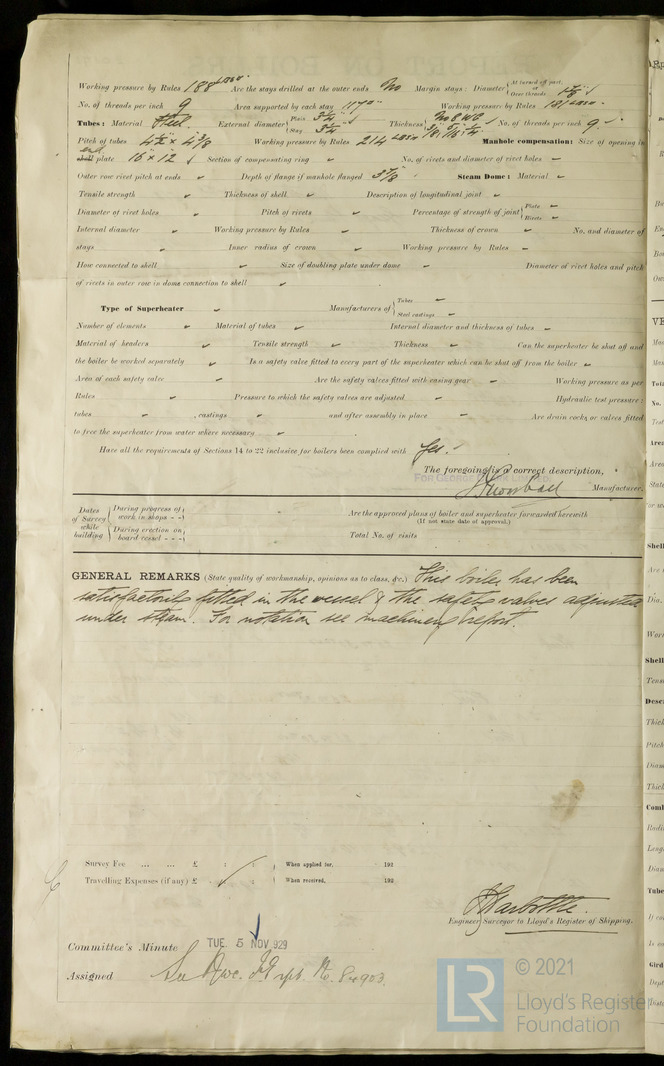 Working pressure by Rules 188 Are the stays drilled at the outer ends No Margin stays: Diameter { At turned off part, or Over threads 1⅞"
No. of threads per inch 9 Area supported by each stay Working pressure by Rules
Tubes: Material Steel External diameter { Plain 3¼" Stay 3¼ Thickness { No 8 WG 5/16 No. of threads per inch 9
Pitch of tubes 4½" × 4⅜ Working pressure by Rules 214 Manhole compensation: Size of opening in
end
shell plate 16 × 12 Section of compensating ring No. of rivets and diameter of rivet holes
Outer row rivet pitch at ends Depth of flange if manhole flanged 3⅜ Steam Dome: Material
Tensile strength Thickness of shell Description of longitudinal joint
Diameter of rivet holes Pitch of rivets Percentage of strength of joint { Plate Rivets
Internal diameter Working pressure by Rules Thickness of crown No. and diameter of
stays Inner radius of crown Working pressure by Rules
How connected to shell Size of doubling plate under dome Diameter of rivet holes and pitch
of rivets in outer row in dome connection to shell
Type of Superheater Manufacturers of { Tubes Steel castings
Number of elements Material of tubes Internal diameter and thickness of tubes
Material of headers Tensile strength Thickness Can the superheater be shut off and
the boiler be worked separately Is a safety valve fitted to every part of the superheater which can be shut off from the boiler
Area of each safety valve Are the safety valves fitted with easing gear Working pressure as per
Rules Pressure to which the safety valves are adjusted Hydraulic test pressure:
tubes, castings and after assembly in place Are drain cocks or valves fitted
to free the superheater from water where necessary
Have all the requirements of Sections 14 to 22 inclusive for boilers been complied with Yes.
The foregoing is a correct description,
FOR GEORGE CLARK LIMITED
Manufacturer.
Dates of Survey while building { During progress of work in shops - - Are the approved plans of boiler and superheater forwarded herewith
(If not state date of approval.)
During erection on board vessel - - - Total No. of visits
GENERAL REMARKS (State quality of workmanship, opinions as to class, &c.) This boiler has been
satisfactorily fitted in the vessel & the safety valves adjusted
under steam. For notation see machinery report.
Survey Fee ... ... £ : : When applied for, 192
Travelling Expenses (if any) £ : : When received, 192
Engineer Surveyor to Lloyd's Register of Shipping.
Committee's Minute TUE. 5 NOV 1929
Assigned See Nwc. Rpt. No. 84903
LR © 2021
Lloyd's Register
Foundation